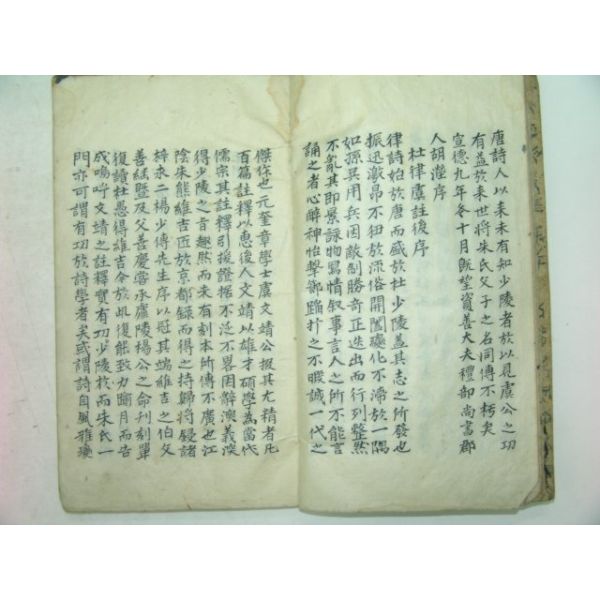 唐詩人以來未有知少陵者於以見虞公之功
有益於來世將朱氏父子之名同傳不朽矣
宣德九年冬十月旣望資善大夫禮部尚書郡
人胡濙序
杜律虞註後序
律詩始於唐而盛於杜少陵盖其志之所發也
振迅激昂不狃於流俗開闔變化不滯於一隅
如孫吳用兵因敵制勝奇正迭出而行列整然
不亂其即景詠物寫情叙事言人之所不能言
誦之者心醉神怡擊節蹈抃之不暇誠一代之
傑作也元奎章學士虞文靖公掇其尤精者凡
百篇註釋以惠後人文靖以雄才碩學為當代
儒宗其註釋引援證据不泛不畧因辭演義深
得少陵之言趣然而未有刻本所傳不廣也江
陰朱熊維吉匠於京都録而得之持歸將鋟諸
梓求二場少傅先生序以冠其端維吉之伯父
善継暨及父善慶嘗承廬陵楊公之命刊刻單
復讀杜愚得維吉今於此復能致力朞月而告
成嗚呼文靖之註釋實有功少陵於而朱氏一
門亦可謂有功於詩學者矣或謂詩自風雅變